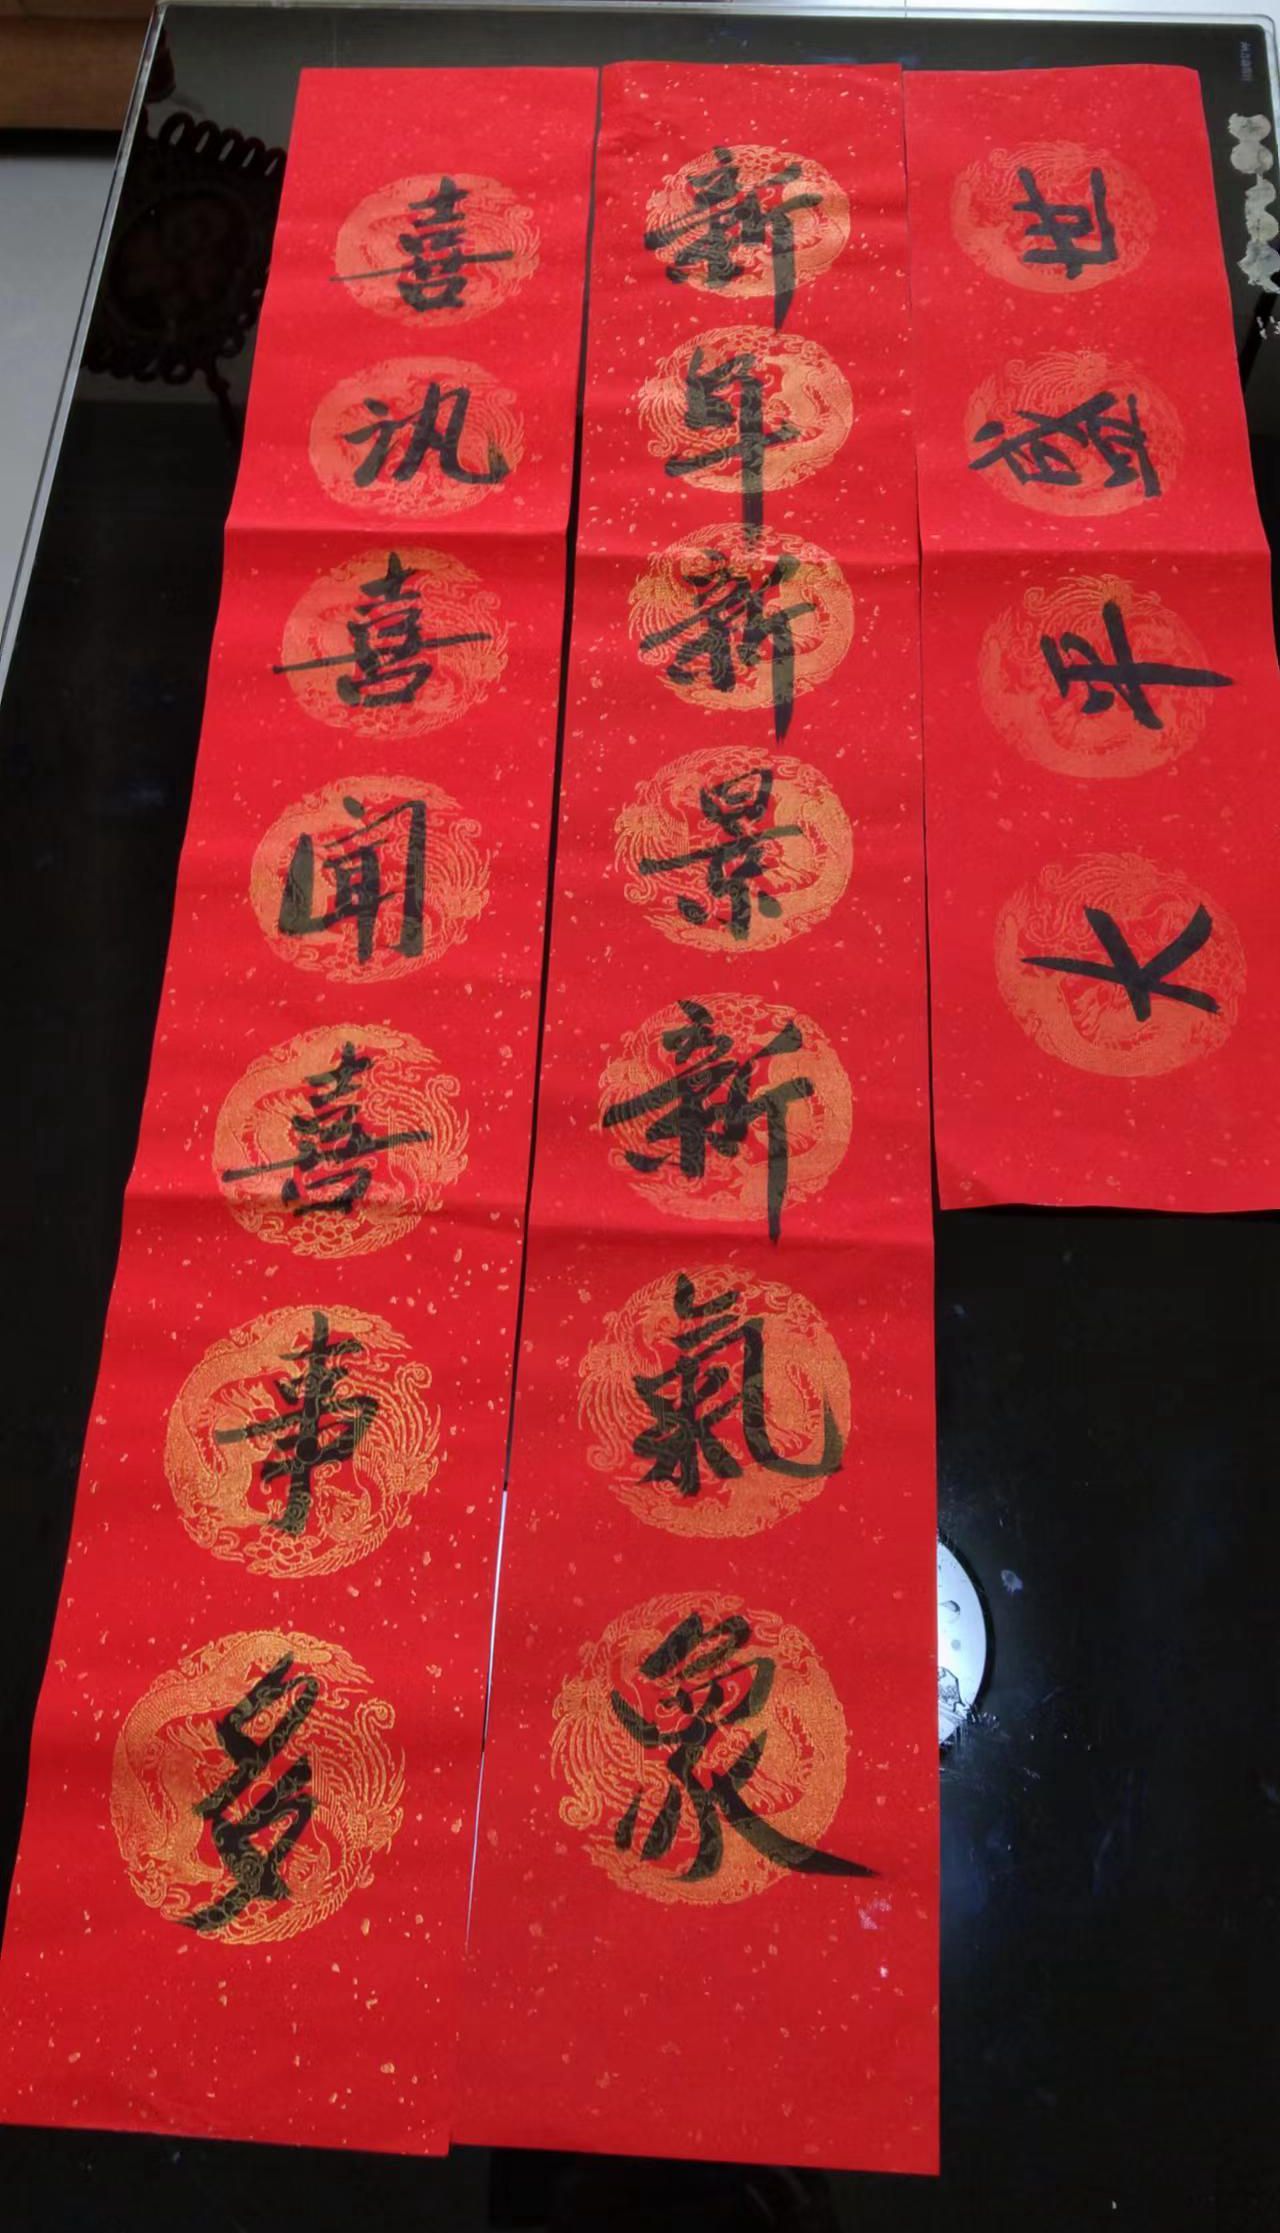 新年新景新氣象
喜讯喜闻喜事多
大平盛世